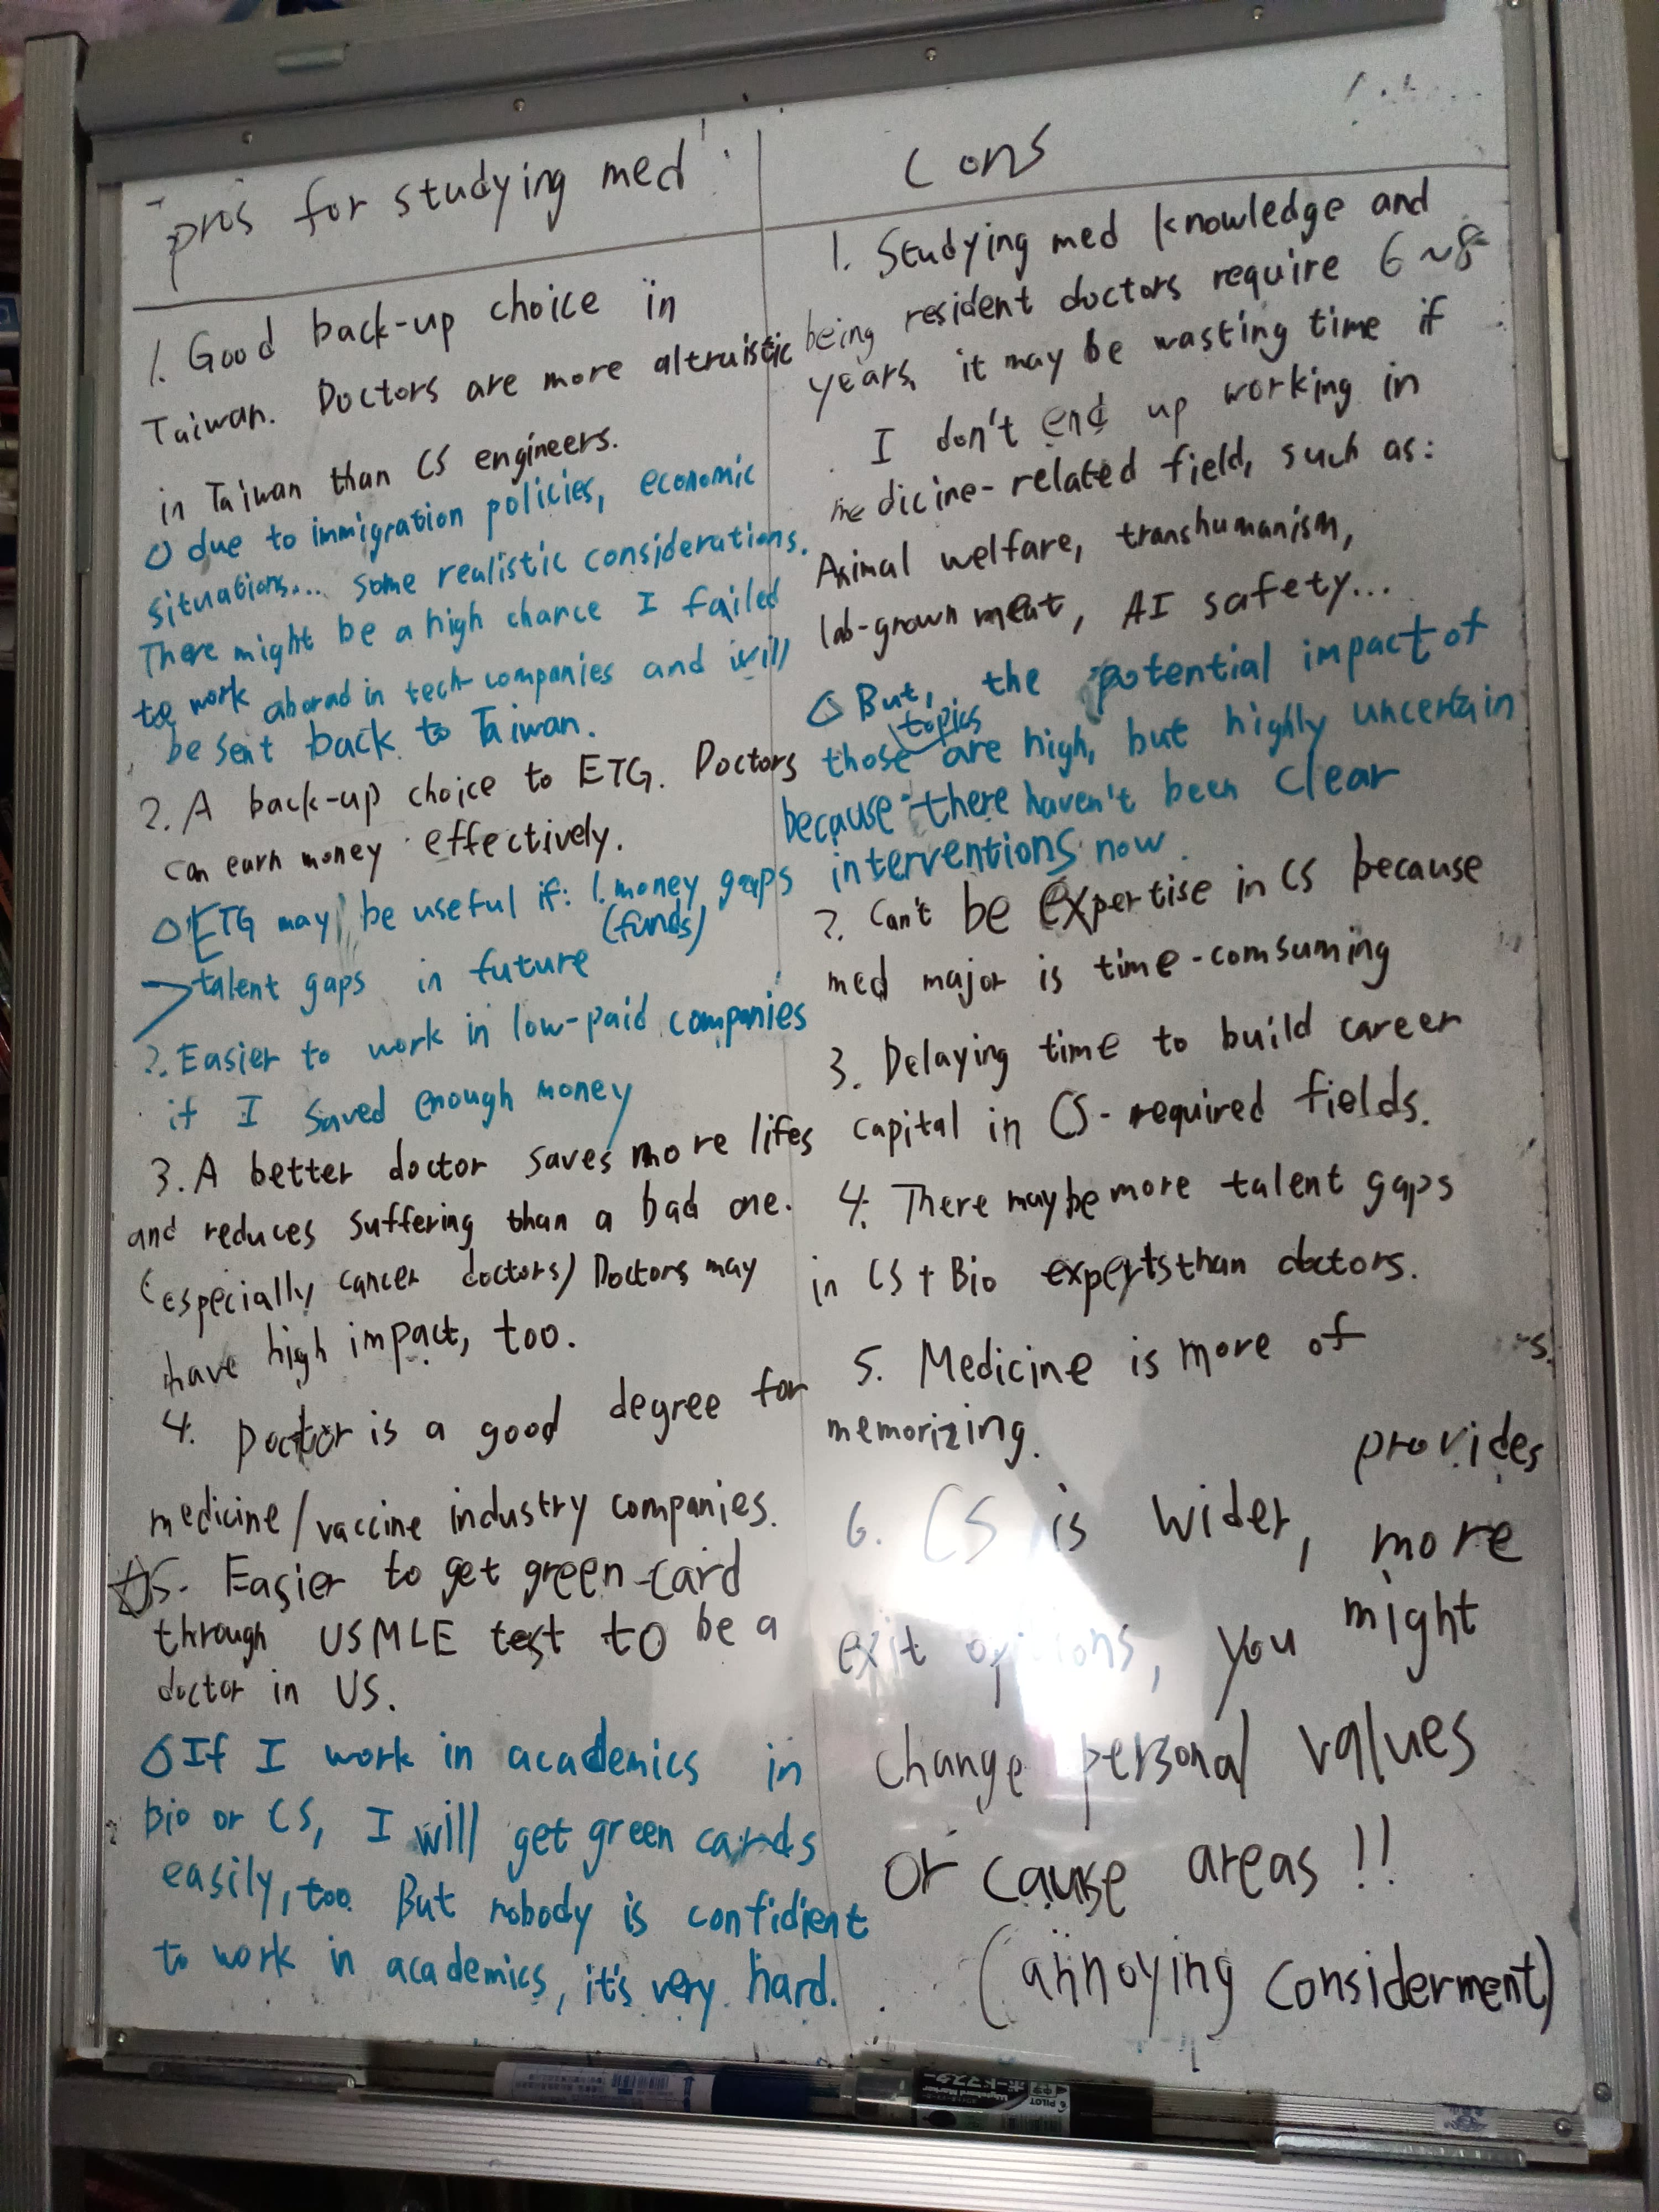 pros for studying med
1. Good back-up choice in
Taiwan. Doctors are more altruistic
in Taiwan than CS engineers.
due to immigration policies, economic
situations... some realistic considerations.
There might be a high chance I failed
to work aborad in tech companies and will
be sent back to Taiwan.
2. A back-up choice to ETG. Doctors
can earn money effectively.
ETG may be useful if: 1. money gaps
(funds)
> talent gaps in future
2. Easier to work in low-paid companies
if I saved enough money
3. A better doctor saves more lifes
and reduces suffering than a bad one.
(especially cancer doctors) Doctors may
have high impact, too.
4. Doctor is a good degree for
medicine/vaccine industry companies.
☆5. Easier to get green-card
through USMLE test to be a
doctor in US.
If I work in academics in
Bio or CS, I will get green cards
easily, too. But nobody is confidient
to work in academics, it's very hard.
Cons
1. Studying med knowledge and
being resident doctors require 6~8
years, it may be wasting time if
I don't end up working in
medicine-related field, such as:
Animal welfare, transhumanism,
lab-grown meat, AI safety...
But, the potential impact of
topics
those are high, but highly uncertain
because there haven't been clear
interventions now.
2. Can't be expertise in CS because
med major is time-comsuming
3. Delaying time to build career
capital in CS-required fields.
4. There may be more talent gaps
in CS + Bio experts than doctors.
5. Medicine is more of
memorizing.
provides
6. CS is wider, more
exit options, you might
change personal values
or cause areas!!
(annoying considerment)
PILOT
ボードマスター
Whiteboard Marker